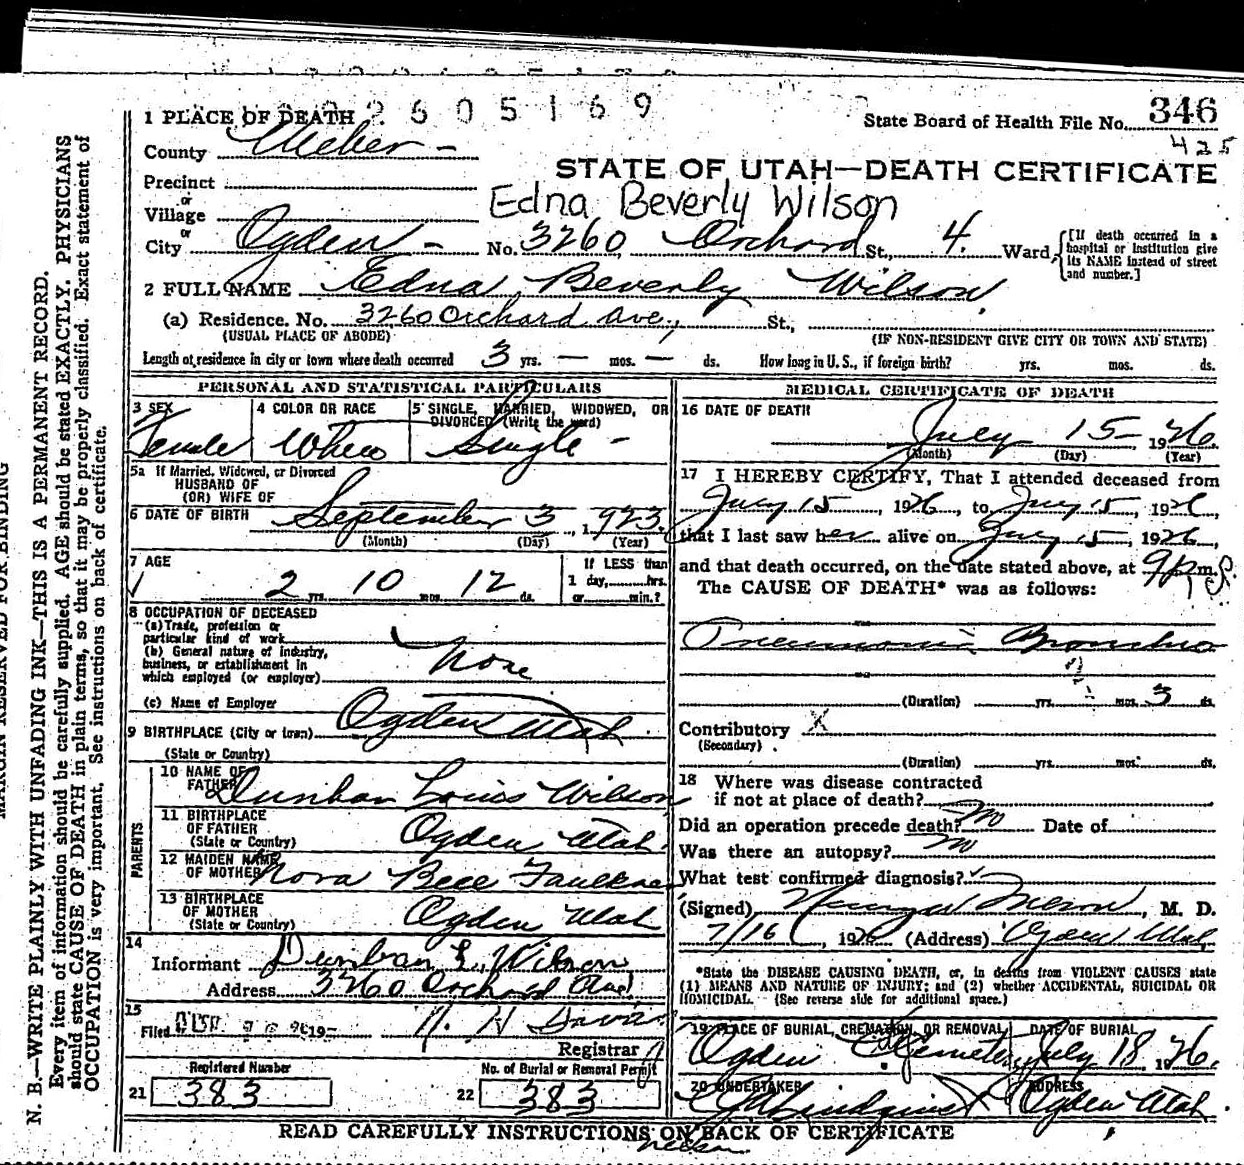 2605169
1 PLACE OF DEATH
State Board of Health File No. 346
425
County Weber -
STATE OF UTAH—DEATH CERTIFICATE
Precinct
or
Village
Edna Beverly Wilson
or
City Ogden - No. 3260 Orchard St., 4. Ward
[If death occurred in a hospital or institution give its NAME instead of street and number.]
2 FULL NAME Edna Beverly Wilson
(a) Residence. No. 3260 Orchard Ave., St.,
(USUAL PLACE OF ABODE) (IF NON-RESIDENT GIVE CITY OR TOWN AND STATE)
Length of residence in city or town where death occurred 3 yrs. — mos. — ds. How long in U. S., if foreign birth? yrs. mos. ds.
PERSONAL AND STATISTICAL PARTICULARS
3 SEX Female
4 COLOR OR RACE White
5 SINGLE, MARRIED, WIDOWED, OR DIVORCED (Write the word) Single -
5a If Married, Widowed, or Divorced
HUSBAND OF
(OR) WIFE OF
6 DATE OF BIRTH September 3, 1923
(Month) (Day) (Year)
7 AGE 2 yrs. 10 mos. 12 ds.
If LESS than
1 day, hrs.
or min.?
8 OCCUPATION OF DECEASED
(a) Trade, profession or
particular kind of work
(b) General nature of industry,
business, or establishment in
which employed (or employer) None
(c) Name of Employer
9 BIRTHPLACE (City or town) Ogden Utah
(State or Country)
PARENTS
10 NAME OF FATHER Dunban Louis Wilson
11 BIRTHPLACE
OF FATHER Ogden Utah.
(State or Country)
12 MAIDEN NAME
OF MOTHER Nora Bell Faulkner
13 BIRTHPLACE
OF MOTHER Ogden Utah
(State or Country)
14
Informant Dunban L. Wilson
Address 3260 Orchard Ave
15
Filed 19
Registrar
Registered Number
21 383
No. of Burial or Removal Permit
22 383
MEDICAL CERTIFICATE OF DEATH
16 DATE OF DEATH
July 15- 1926.
(Month) (Day) (Year)
17 I HEREBY CERTIFY, That I attended deceased from
July 15, 1926, to July 15, 1926,
that I last saw her alive on July 15, 1926,
and that death occurred, on the date stated above, at 9 P m.
The CAUSE OF DEATH* was as follows:
Pneumonia Broncho
(Duration) yrs. mos. 3 ds.
Contributory X
(Secondary)
(Duration) yrs. mos. ds.
18 Where was disease contracted
if not at place of death?
Did an operation precede death? no Date of
Was there an autopsy? no
What test confirmed diagnosis?
(Signed) , M. D.
7/16, 1926 (Address) Ogden Utah
*State the DISEASE CAUSING DEATH, or, in deaths from VIOLENT CAUSES state
(1) MEANS AND NATURE OF INJURY; and (2) whether ACCIDENTAL, SUICIDAL OR
HOMICIDAL. (See reverse side for additional space.)
19 PLACE OF BURIAL, CREMATION, OR REMOVAL DATE OF BURIAL
Ogden City Cemetery July 18, 1926.
20 UNDERTAKER ADDRESS
Ogden Utah.
READ CAREFULLY INSTRUCTIONS ON BACK OF CERTIFICATE
MARGIN RESERVED FOR BINDING
N. B.—WRITE PLAINLY WITH UNFADING INK—THIS IS A PERMANENT RECORD.
Every item of information should be carefully supplied. AGE should be stated EXACTLY. PHYSICIANS
should state CAUSE OF DEATH in plain terms, so that it may be properly classified. Exact statement of
OCCUPATION is very important. See instructions on back of certificate.